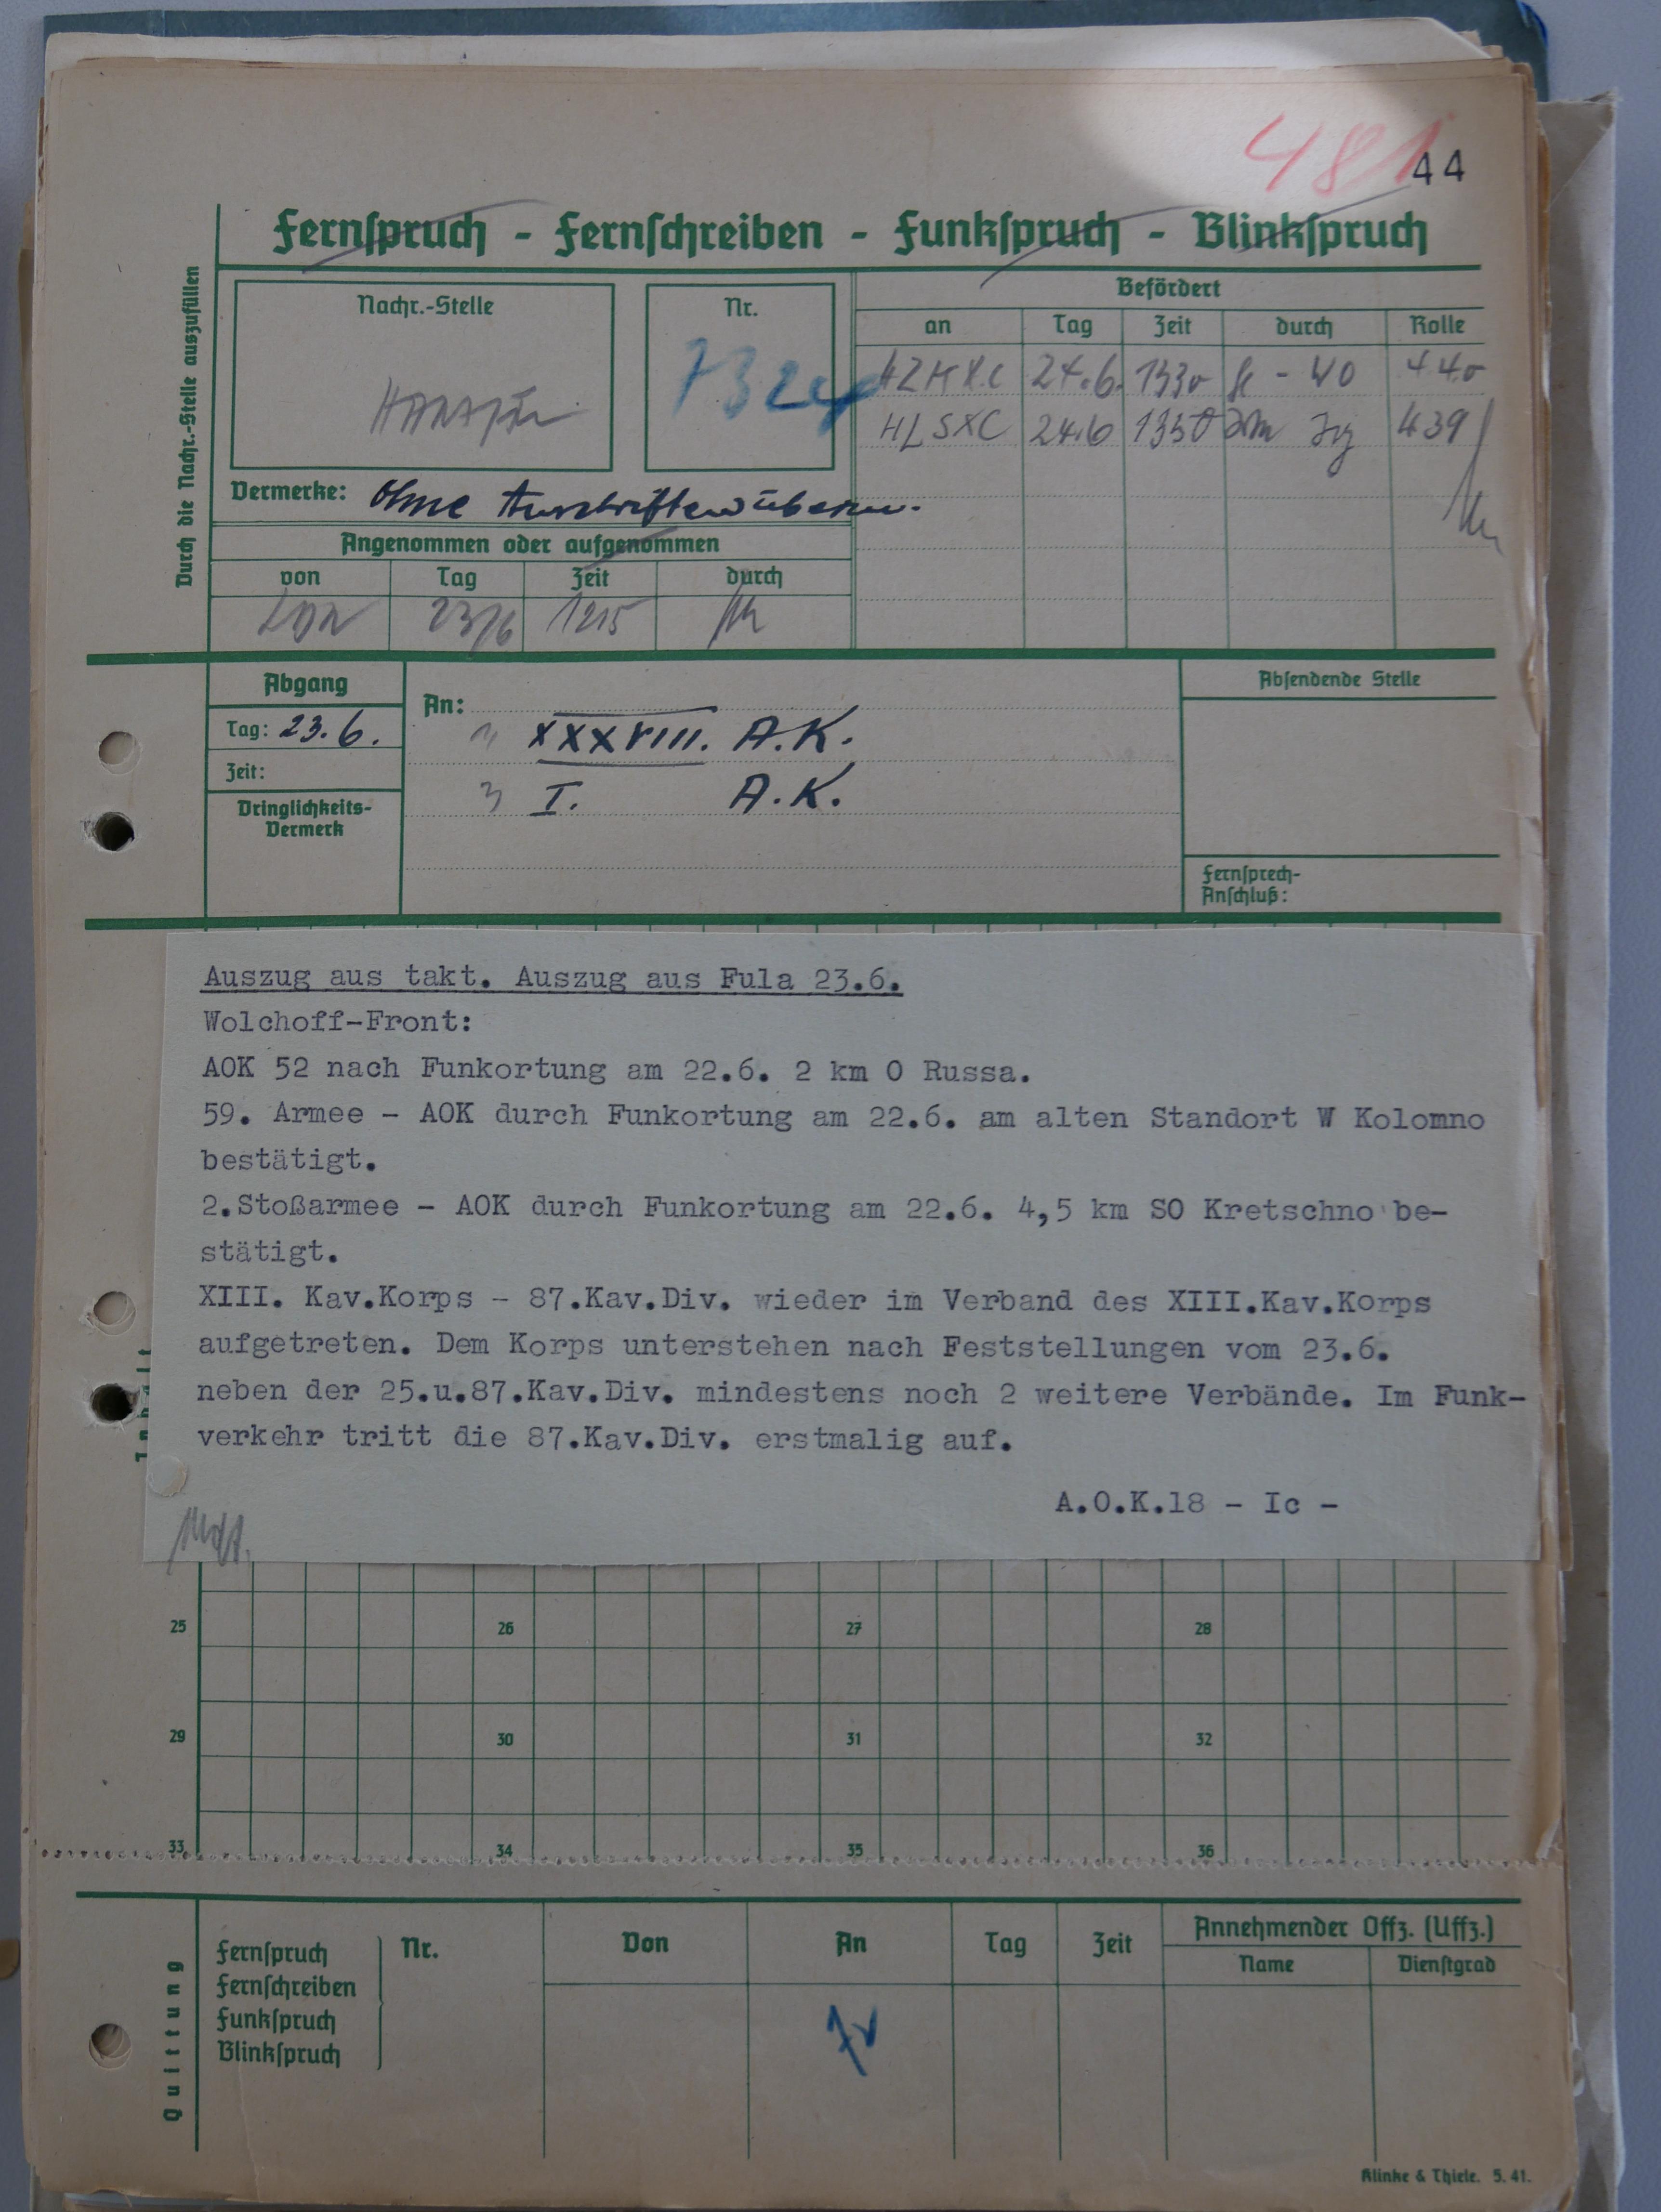 481
44
Fernspruch - Fernschreiben - Funkspruch - Blinkspruch
Durch die Nachr.-Stelle auszufüllen
Nachr.-Stelle
Nr.
Befördert
an Tag Zeit durch Rolle
HZMXC 24.6. 1330 440
HLSXC 24.6 1350 439
Vermerke: Ohne Anschriftenübern.
Angenommen oder aufgenommen
von Tag Zeit durch
23/6 1215
Abgang
Tag: 23.6.
Zeit:
Dringlichkeits-
Vermerk
An:
XXXVIII. A.K.
I. A.K.
Absendende Stelle
Fernsprech-
Anschluß:
Auszug aus takt. Auszug aus Fula 23.6.
Wolchoff-Front:
AOK 52 nach Funkortung am 22.6. 2 km O Russa.
59. Armee - AOK durch Funkortung am 22.6. am alten Standort W Kolomno
bestätigt.
2.Stoßarmee - AOK durch Funkortung am 22.6. 4,5 km SO Kretschno be-
stätigt.
XIII. Kav.Korps - 87.Kav.Div. wieder im Verband des XIII.Kav.Korps
aufgetreten. Dem Korps unterstehen nach Feststellungen vom 23.6.
neben der 25.u.87.Kav.Div. mindestens noch 2 weitere Verbände. Im Funk-
verkehr tritt die 87.Kav.Div. erstmalig auf.
A.O.K.18 - Ic -
25 26 27 28
29 30 31 32
33 34 35 36
Quittung
Fernspruch
Fernschreiben
Funkspruch
Blinkspruch
Nr.
Von
An
Tag
Zeit
Annehmender Offz. (Uffz.)
Name Dienstgrad
Klinke & Thiele. 5. 41.